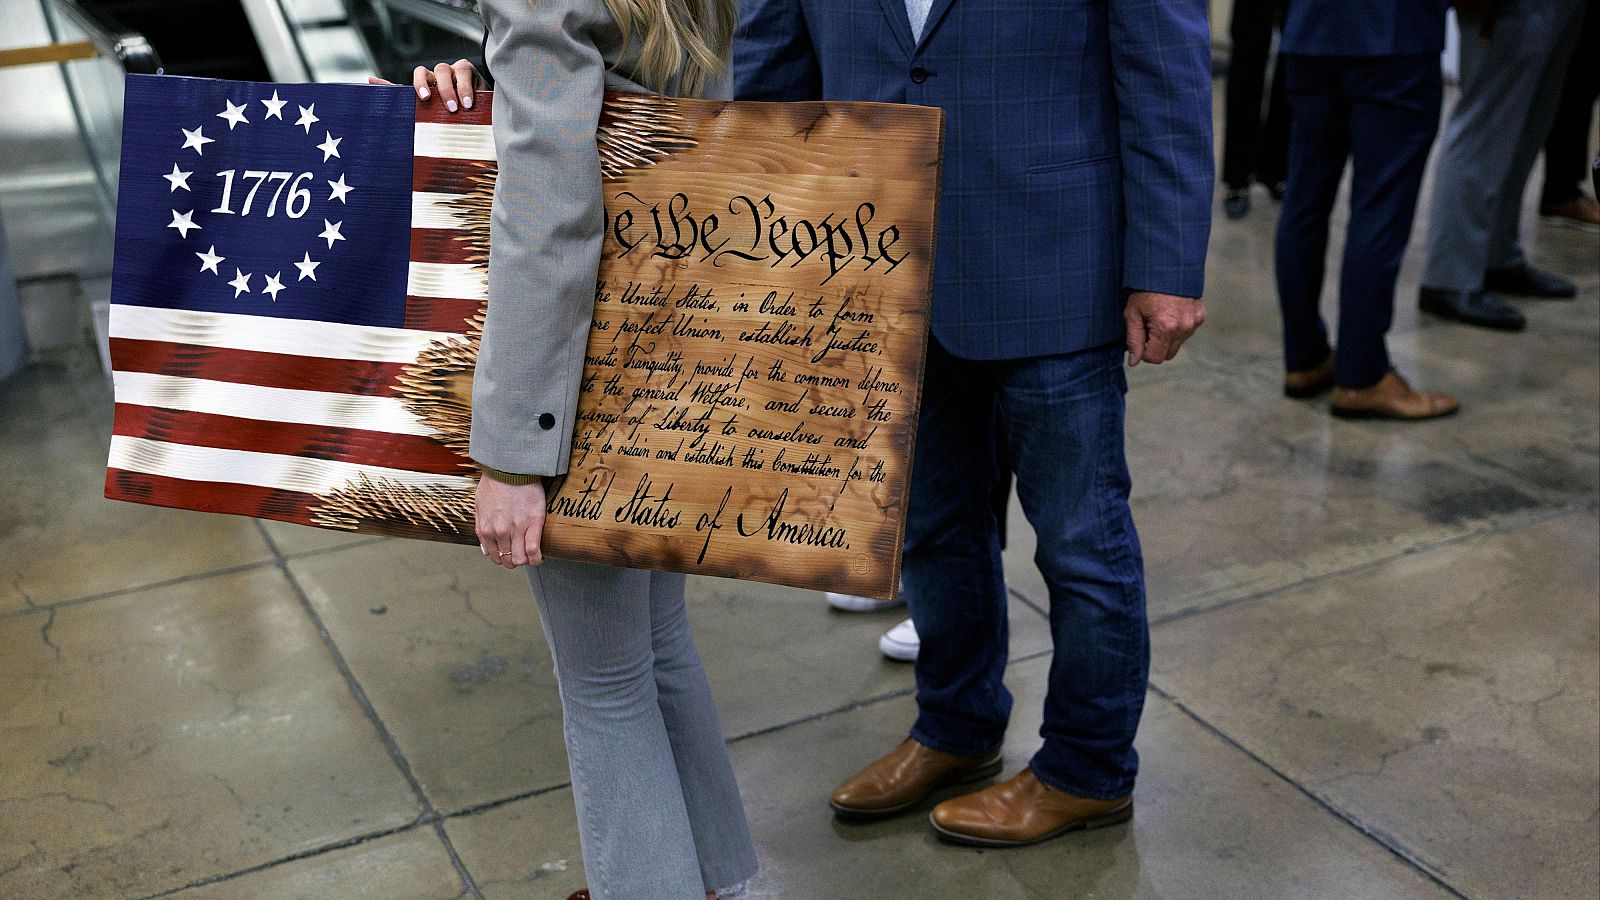 1776
e the People
the United States, in Order to form
ore perfect Union, establish Justice,
mestic Tranquility, provide for the common defence,
te the general Welfare, and secure the
sings of Liberty to ourselves and
rity, do ordain and establish this Constitution for the
United States of America.